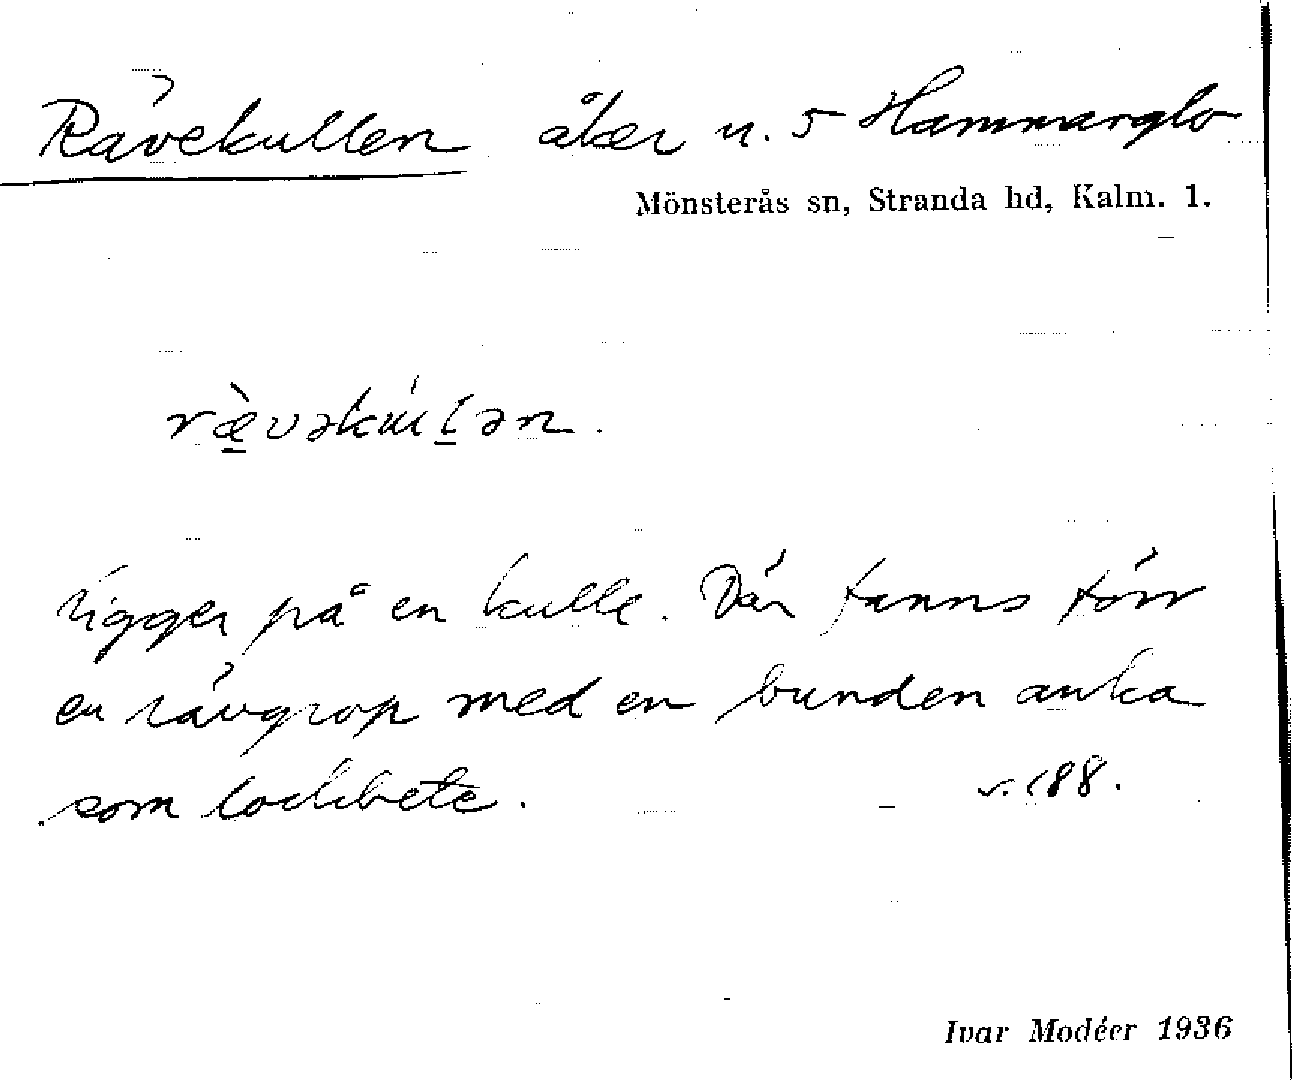 Rävekullen åker n. 5 Hammarglo
Mönsterås sn, Stranda hd, Kalm. l.
ræ̀vəkúlən.
Ligger på en kulle. Där fanns förr
en rävgrop med en bunden anka
som lockbete. v. 188.
Ivar Modéer 1936